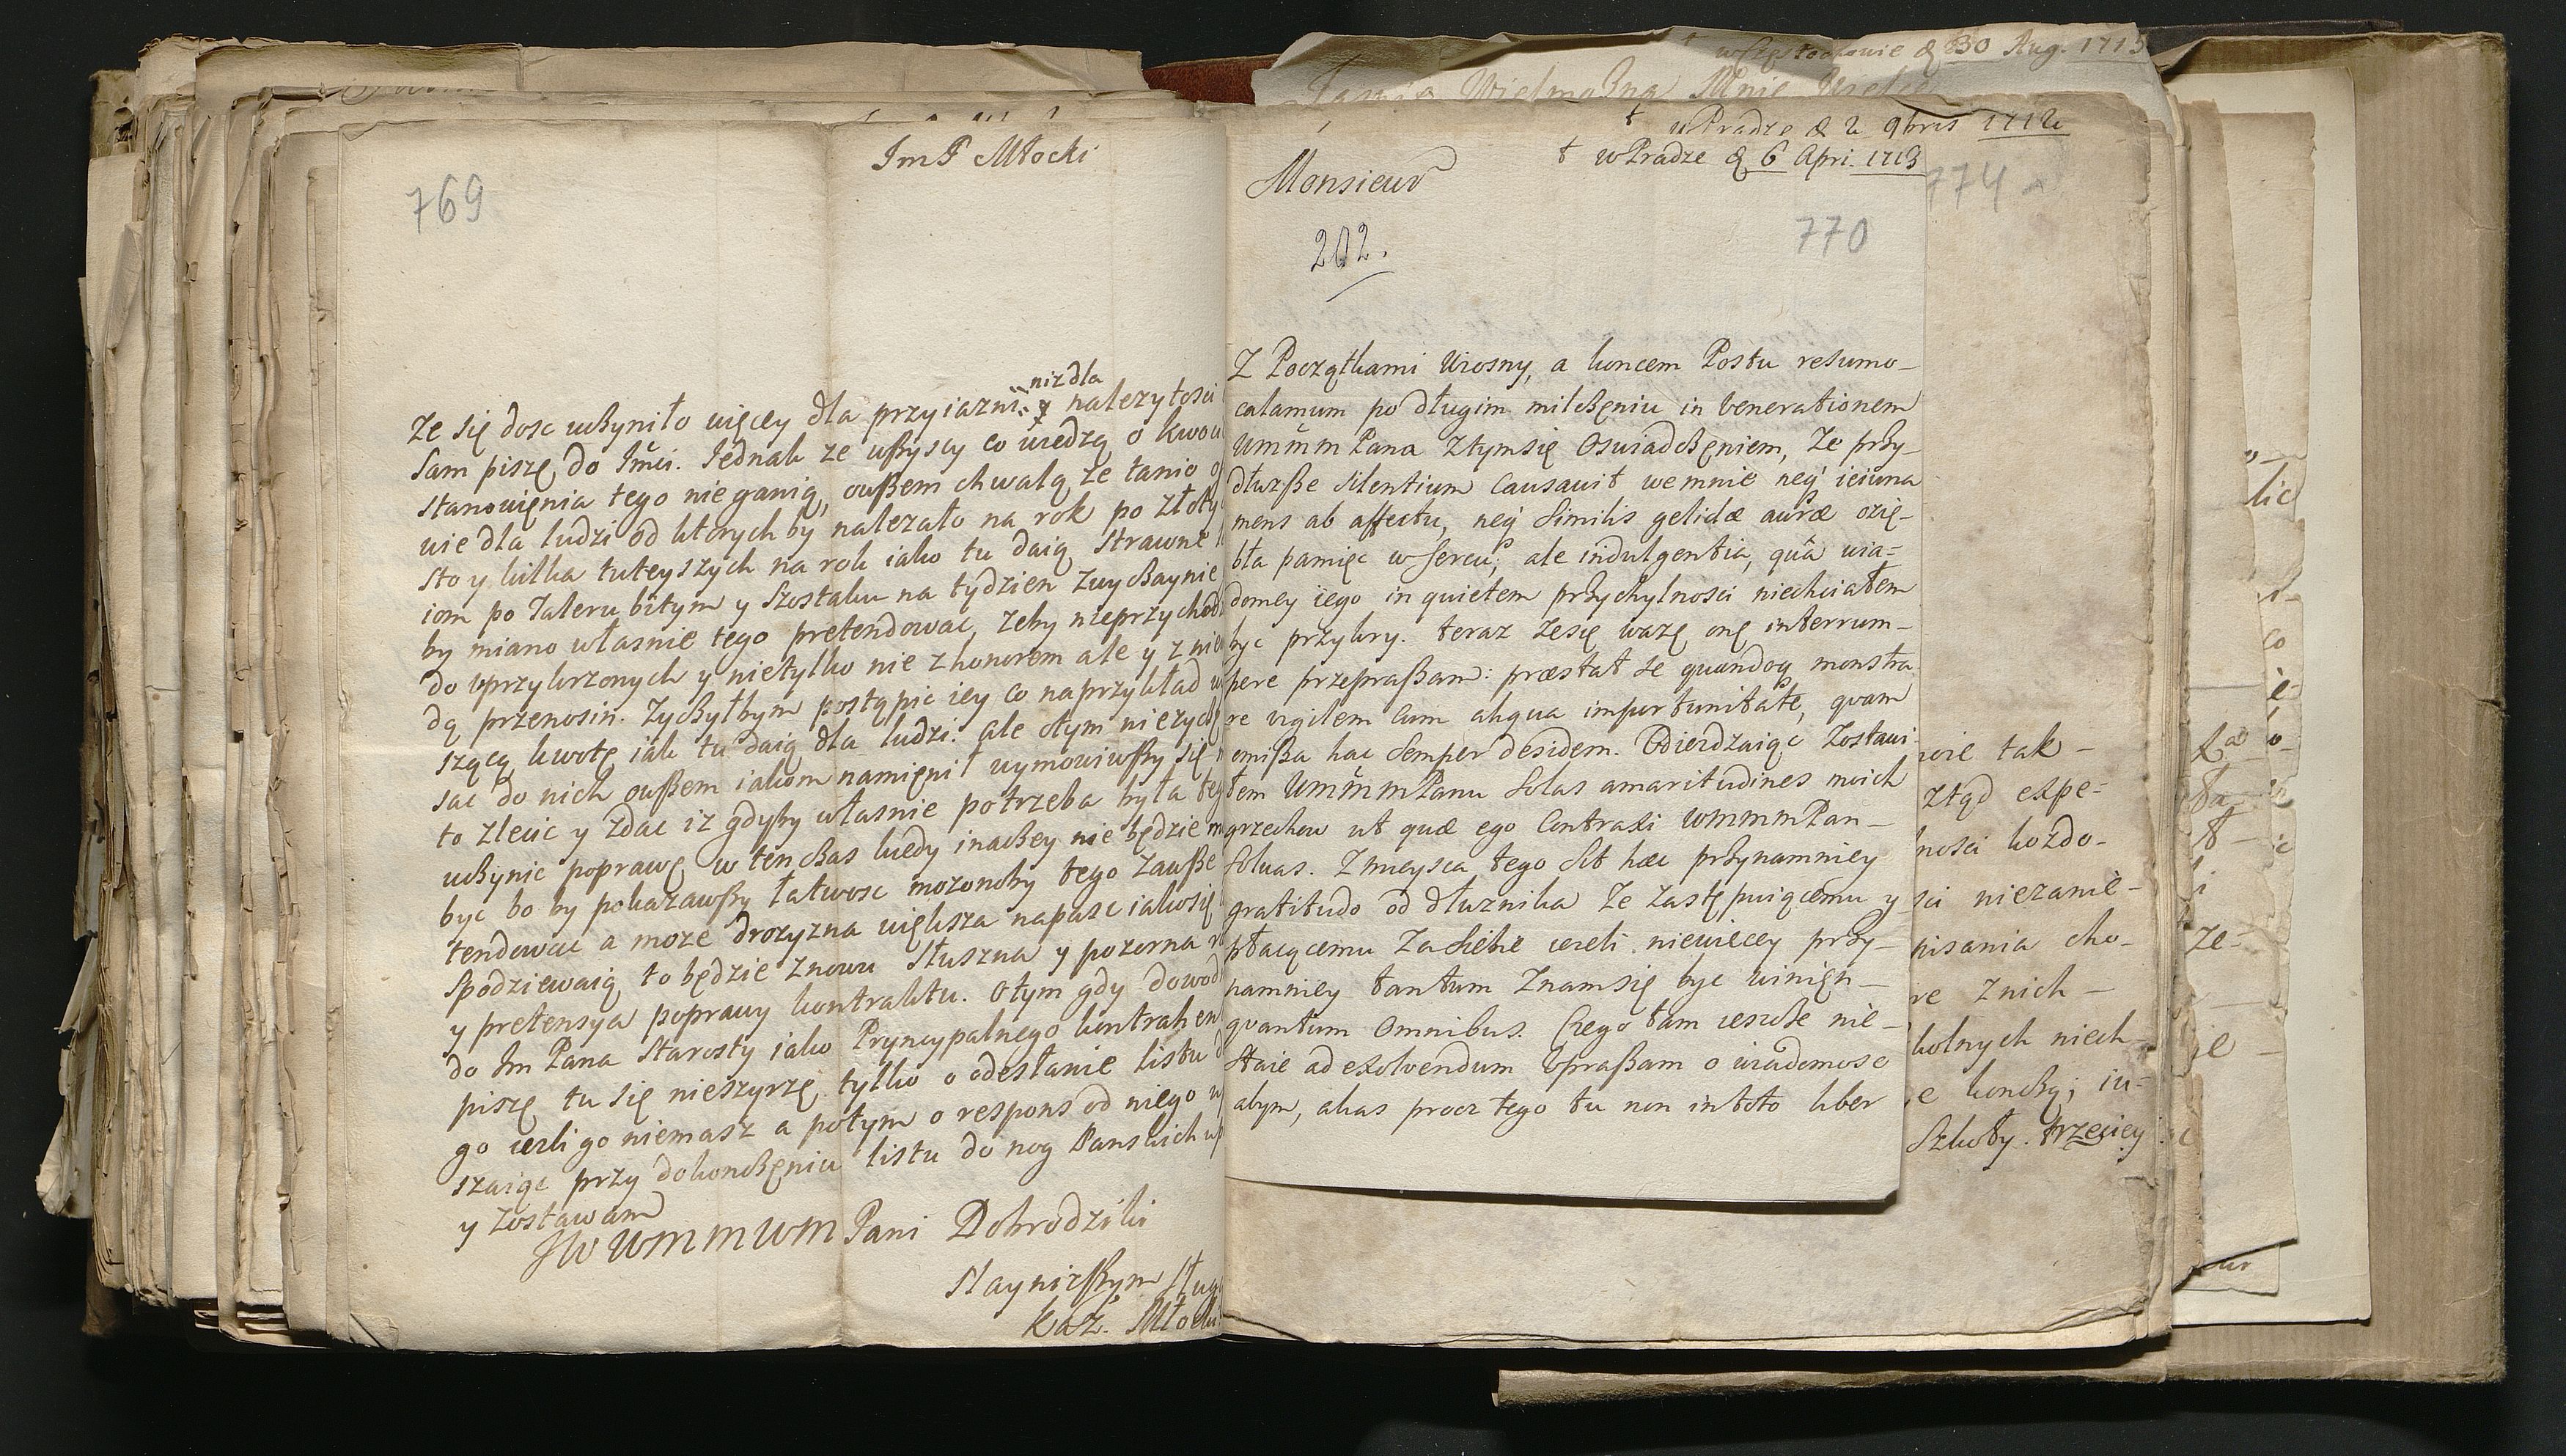 Im P Młocki
769
niz dla
Ze się dosc uczyniło więcey dla przyiazni y nalezytosci
Sam piszę do Imci. Jednak ze wszyscy co wiedzą o kwou
stanowięnia tego nieganią, owszem chwalą ze tanio
wie dla ludzi od ktorych by nalezało na rok po złoty
sto y kilka tuteyszych na rok iako tu daią strawne
iom po Taleru bitym y Szostaku na tydzien zwyczaynie
by miano własnie tego pretendowac, zeby nieprzychod
do uprzykrzonych y nietylko nie z honorem ale y z nie
dą przenosin. Zyczyłbym postąpic iey co naprzykład
szącą kwotę iak tu daią dla ludzi. ale otym niezycz
sac do nich owszem iakom namięnił wymowiwszy się
to zlecic y zdac iz gdyby własnie potrzeba była teg
uczynic poprawę w ten czas kiedy inaczey nie będzie m
byc bo by pokazawszy łatwosc mozonoby tego zawsze
tendowac a moze drozyzna większa napasc iakosię
spodziewaią, to będzie znowu słuszna y pozorna
y pretensya poprawy kontraktu. Otym gdy dowod
do Im Pana Starosty iako Pryncypalnego kontrahen
piszę tu się nieszyrzę tylko o odesłanie listu
go iezli go niemasz a potym o respons od niego
szaiąc przy dokonczęniu listu do nog Panskich up
y zostawam
JW WMMWM Pani Dobrodziki
Naynizszym Sług
Kaz. Młocki
w Częstochowie d 30 Aug. 1713
Jasnie Wielmozna Mnie Wielce
w Pradze d 2 9bris 1712
w Pradze d 6 Apri. 1713
Monsieur
774
770
202.
Z Początkami Wiosny, a koncem Postu resumo
calamum po długim milczęniu in venerationem
WMMM Pana z tym się Oswiadczęniem, Ze przy
dłuzsze silentium causavit we mnie neq ieiuna
mens ab affectu, neq similis gelidæ auræ ozię-
bła pamięc w sercu; ale indulgentia, quâ wia-
domey iego in quietem przychylnosci niechciałem
byc przykry. teraz ze się wazę onę interrum-
pere przepraszam: præstat se quandoq monstra
re vigilem cum aliqua importunitate, quam
omissa hac semper desidem. Odierdzaiąc Zostawi-
łem WMMM Panu solas amaritudines moich
grzechow ut quæ ego contraxi WMMM Pan
soluas. Z mieysca tego sit hæc przynamniey
gratitudo od dłuznika Ze zastępuiącemu y
płacącemu za siebie iezeli niewięcey przy-
namniey tantum Znam się byc winięn
quantum omnibus. Czego tam ieszcze nie-
staie ad exolvendum upraszam o wiadomosc
abym, alias procz tego tu non in toto liber
wie tak
ztąd expe-
nosci kozdo-
sci niezanie-
pisania cho-
re z nich
kolnych niech
e konczą; iu-
Szkoły. trzeciey
lic
co
ze-
ie